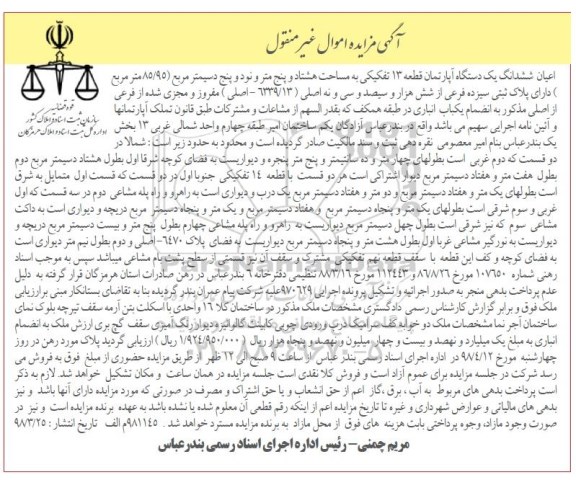 آگهی مزایده اموال غیر منقول
قوه قضائیه
سازمان ثبت اسناد و املاک کشور
اداره کل ثبت اسناد و املاک هرمزگان
اعیان ششدانگ یک دستگاه آپارتمان قطعه ۱۳ تفکیکی به مساحت هشتاد و پنج متر و نود و پنج دسیمتر مربع (۸۵/۹۵ متر مربع
) دارای پلاک ثبتی سیزده فرعی از شش هزار و سیصد و سی و نه اصلی (۶۳۳۹/۱۳ - اصلی ) مفروز و مجزی شده از فرعی
از اصلی مذکور به انضمام یکباب انباری در طبقه همکف که بقدر السهم از مشاعات و مشترکات طبق قانون تملک آپارتمانها
و آئین نامه اجرایی سهیم می باشد واقع در بندرعباس آزادگان یکم ساختمان امیر طبقه چهارم واحد شمالی غربی ۱۳ بخش
یک بندرعباس بنام امیر معصومی نقره می ثبت و سند مالکیت صادر گردیده است و محدود به حدود زیر است: شمالا در
دو قسمت که دوم غربی است بطولهای چهار متر و ده سانتیمتر و پنج متر پنجره و دیواریست به فضای کوچه شرقا اول بطول هشتاد دسیمتر مربع دوم
بطول هفت متر و هفتاد دسیمتر مربع دیوار اشتراکی است هر دو قسمت با قطعه ۱۴ تفکیکی جنوبا اول در دو قسمت که قسمت اول متمایل به شرق
است بطولهای یک متر و هفتاد دسیمتر مربع و دو متر و هفتاد دسیمتر مربع یک درب و دیواری است به راهرو و راه پله مشاعی دوم در سه قسمت که اول
غربی و سوم شرقی است بطولهای یک متر و پنجاه دسیمتر مربع و هفتاد دسیمتر مربع و یک متر و پنجاه دسیمتر مربع دریچه و دیواری است به داکت
مشاعی سوم که نیز شرقی است بطول چهل دسیمتر مربع دیواریست به راهرو و راه پله مشاعی چهارم بطول پنج متر و بیست دسیمتر مربع دریچه و
دیواریست به نورگیر مشاعی غربا اول بطول هشت متر و پنجاه دسیمتر مربع دیواریست به فضای پلاک ۶۴۷۰- اصلی و دوم بطول نیم متر دیواری است
به فضای کوچه و کف این قطعه با سقف قطعه نهم تفکیکی مشترک و سقف آن نیز قسمتی از سطح پشت بام مشاعی میباشد سپس به موجب اسناد
رهنی شماره ۱۰۷۶۵۰ مورخ ۸۶/۸/۲۶ و ۱۱۲۴۴۳ مورخ ۸۸/۳/۱۶ تنظیمی دفترخانه ۶ بندرعباس در رهن صادرات استان هرمزگان قرار گرفته به دلیل
عدم پرداخت بدهی منجر به صدور اجرائیه و تشکیل پرونده اجرایی ۹۷۰۶۲۹ علیه شرکت پیام عمران بندر گردیده بنا به تقاضای بستانکار مبنی برارزیابی
ملک فوق و برابر گزارش کارشناس رسمی دادگستری مشخصات ملک مذکور در ساختمان کلا ۱۶ واحدی با اسکلت بتن آرمه سقف تیرچه بلوک نمای
ساختمان آجر نما مشخصات ملک دو خوابه کف سرامیک درب ورودی چوبی کابینت گالوانیزه و دیوار رنگ آمیزی سقف گچ بری ارزش ملک به انضمام
انباری به مبلغ یک میلیارد و نهصد و بیست و چهار میلیون و نهصد و پنجاه هزار ریال (۱/۹۲۴/۹۵۰/۰۰۰ ریال ) ارزیابی گردید پلاک مورد رهن در روز
چهارشنبه مورخ ۹۸/۴/۱۲ در اداره اجرای اسناد رسمی بندرعباس از ساعت ۹ صبح الی ۱۲ ظهر از طریق مزایده حضوری از مبلغ فوق به فروش می
رسد شرکت در جلسه مزایده برای عموم آزاد است و فروش کلا نقدی است جلسه مزایده در همان ساعت و مکان تشکیل خواهد شد. لازم به ذکر
است پرداخت بدهی های مربوط به آب ، برق ،گاز اعم از حق انشعاب و یا حق اشتراک و مصرف در صورتی که مورد مزایده دارای آنها باشد و نیز
بدهی های مالیاتی و عوارض شهرداری و غیره تا تاریخ مزایده اعم از اینکه رقم قطعی آن معلوم شده یا نشده باشد به عهده برنده مزایده است و نیز در
صورت وجود مازاد، وجوه پرداختی بابت هزینه های فوق از محل مازاد به برنده مزایده مسترد خواهد شد . ۹۸۱۱۴۵/م الف تاریخ انتشار: ۹۸/۳/۲۵
مریم چمنی– رئیس اداره اجرای اسناد رسمی بندرعباس